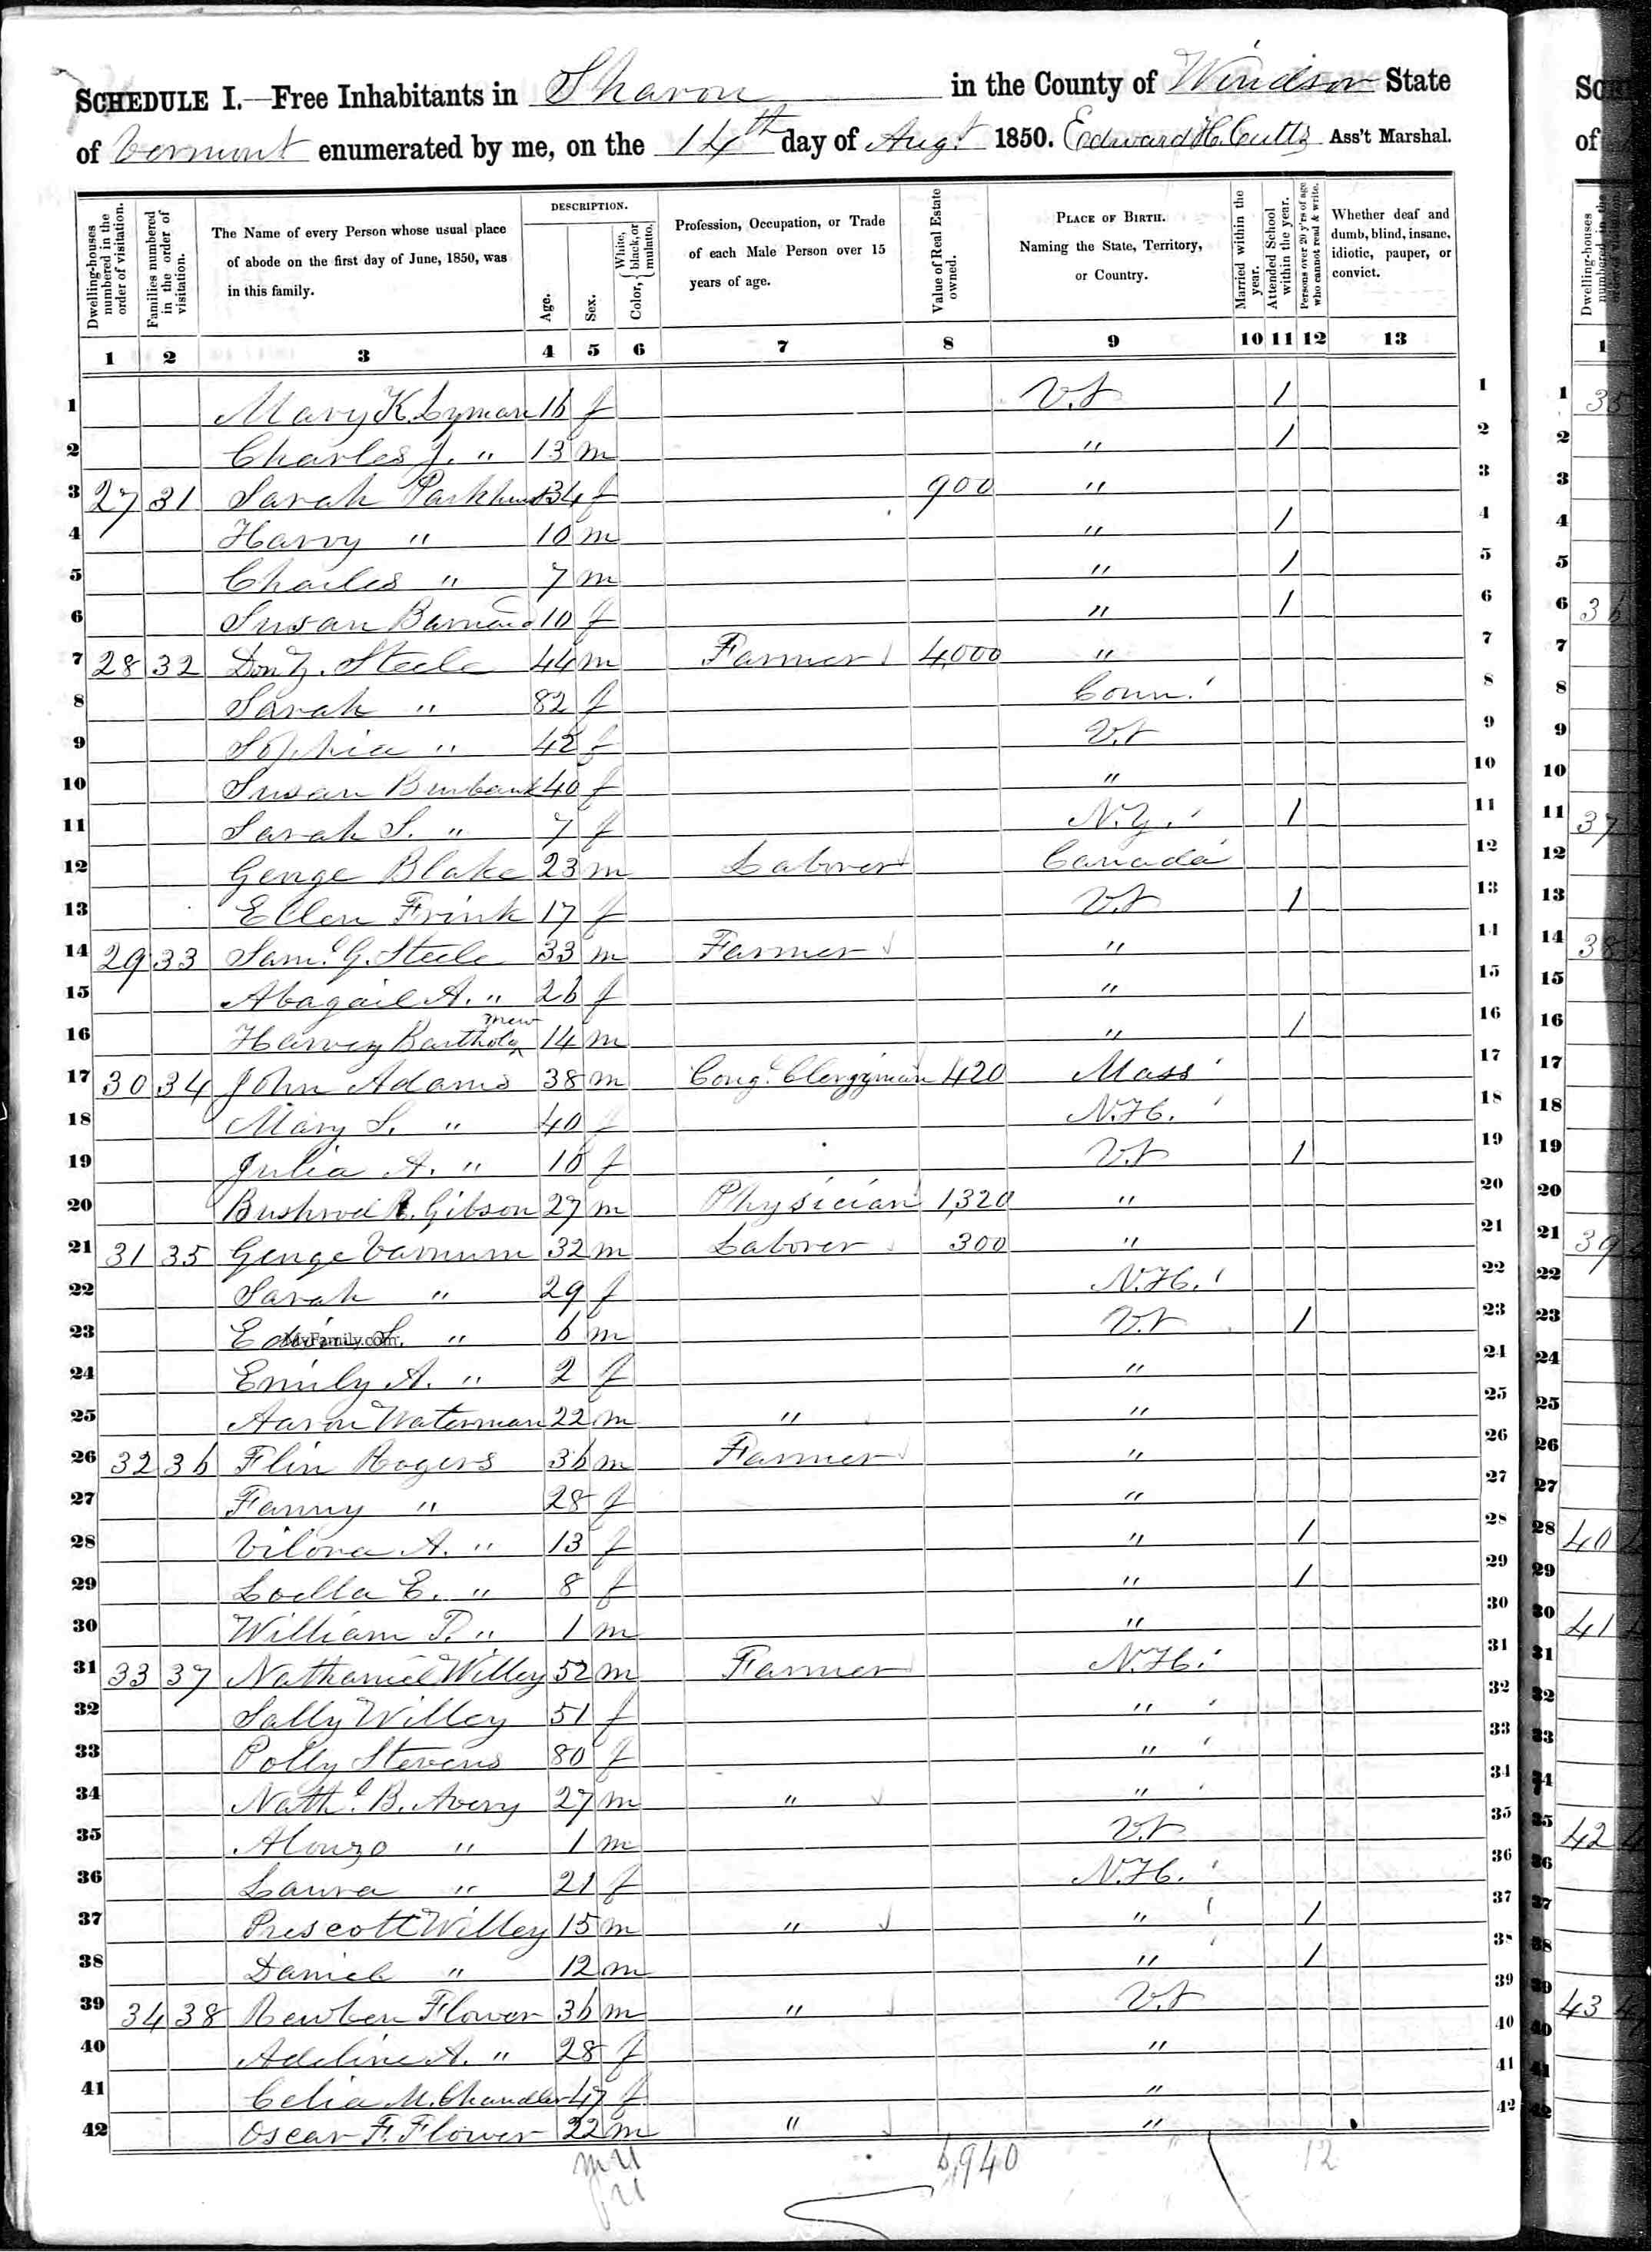 SCHEDULE I.—Free Inhabitants in Sharon in the County of Windsor State
of Vermont enumerated by me, on the 14th day of Augt 1850. Edward H. Cutts Ass't Marshal.
Dwelling-houses numbered in the order of visitation.
Families numbered in the order of visitation.
The Name of every Person whose usual place of abode on the first day of June, 1850, was in this family.
DESCRIPTION.
Age.
Sex.
Color, { White, black, or mulatto.
Profession, Occupation, or Trade of each Male Person over 15 years of age.
Value of Real Estate owned.
PLACE OF BIRTH. Naming the State, Territory, or Country.
Married within the year.
Attended School within the year.
Persons over 20 y'rs of age who cannot read & write.
Whether deaf and dumb, blind, insane, idiotic, pauper, or convict.
1 2 3 4 5 6 7 8 9 10 11 12 13
1 Mary K. Lyman 16 f V.t / 1
2 Charles J. " 13 m " / 2
3 27 31 Sarah Parkhurst 34 f 900 " 3
4 Harvy " 10 m " / 4
5 Charles " 7 m " / 5
6 Susan Barnard 10 f " / 6
7 28 32 Steele 44 m Farmer 4,000 " 7
8 Sarah " 82 f Conn. 8
9 Sophia " 42 f V.t 9
10 Susan Burbank 40 f " 10
11 Sarah S. " 7 f N.Y. / 11
12 George Blake 23 m Laborer Canada 12
13 Ellen Frink 17 f V.t / 13
14 29 33 Saml G. Steele 33 m Farmer " 14
15 Abagail A. " 26 f " 15
16 Harvey Bartholomew 14 m " / 16
17 30 34 John Adams 38 m Congl Clergyman 420 Mass 17
18 Mary S. " 40 f N.H. 18
19 Julia A. " 10 f V.t / 19
20 Bushrod R. Gibson 27 m Physician 1,320 " 20
21 31 35 George Varnum 32 m Laborer 300 " 21
22 Sarah " 29 f N.H. 22
23 S. " 6 m V.t / 23
MyFamily.com
24 Emily A. " 2 f " 24
25 Aaron Waterman 22 m " " 25
26 32 36 Flin Rogers 36 m Farmer " 26
27 Fanny " 28 f " 27
28 Vilora A. " 13 f " / 28
29 Loella E. " 8 f " / 29
30 William P. " 1 m " 30
31 33 37 Nathaniel Willey 52 m Farmer N.H. 31
32 Sally Willey 51 f " 32
33 Polly Stevens 80 f " 33
34 Nathl B. Avery 27 m " " 34
35 Alonzo " 1 m V.t 35
36 Laura " 21 f N.H. 36
37 Prescott Willey 15 m " " / 37
38 Daniel " 12 m " / 38
39 34 38 Reuben Flower 36 m " V.t 39
40 Adeline A. " 28 f " 40
41 Celia M. Chandler 47 f " 41
42 Oscar F. Flower 22 m " " 42
m 21
f 21
6,940
12